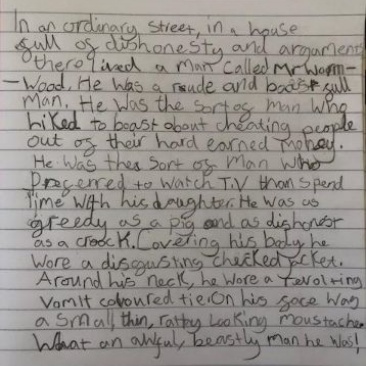 In an ordinary street, in a house
full of dishonesty and argument
there lived a man called Mr Worm-
-Wood. He was a rude and boastfull
Man. He was the sort of man who
Liked to boast about cheating people
out of their hard earned money.
He was the sort of man who
Preferred to watch T.V than spend
Time with his daughter. He was as
greedy as a pig and as dishonest
as a crook. Covering his body he
wore a disgusting checked jacket.
Around his neck, he wore a revolting
Vomit coloured tie. On his face was
a small, thin, ratty looking moustache.
What an awful, beastly man he was!